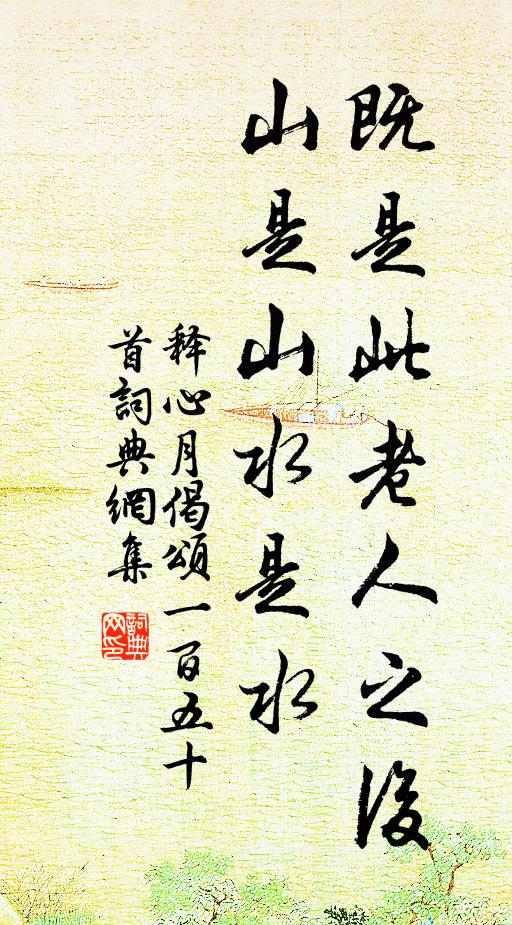 既是此老人之後
山是山水是水
释心月偈頌一百五十
首詞典網集
詞典
网印